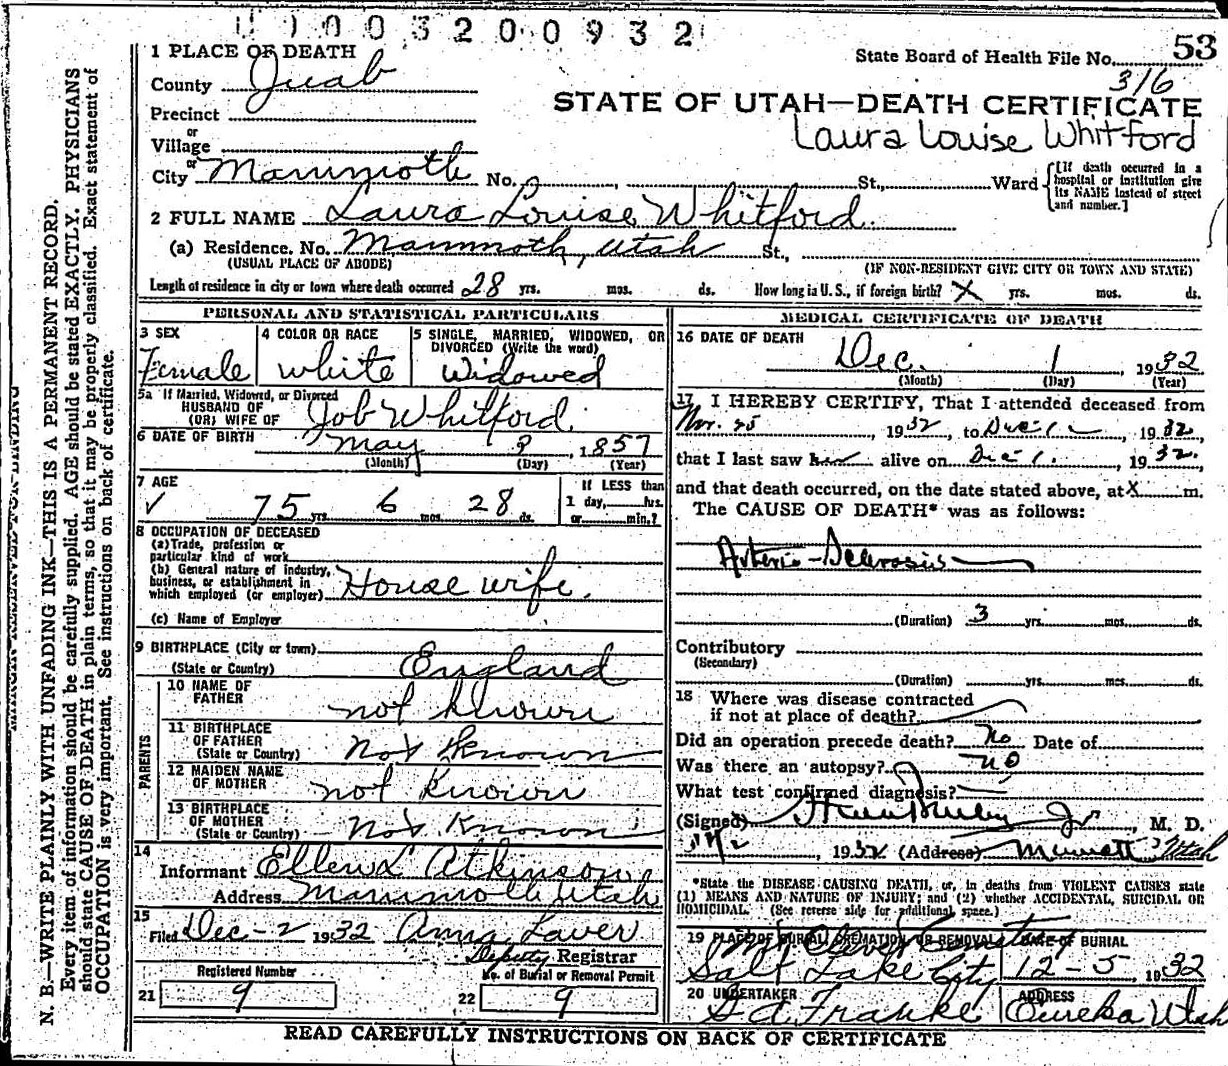 1003200932
53
State Board of Health File No.
316
STATE OF UTAH—DEATH CERTIFICATE
Laura Louise Whitford
1 PLACE OF DEATH
County Juab
Precinct
or
Village
or
City Mammoth No. St., Ward
[If death occurred in a
hospital or institution give
its NAME instead of street
and number.]
2 FULL NAME Laura Louise Whitford.
(a) Residence. No. Mammoth, Utah St.,
(USUAL PLACE OF ABODE) (IF NON-RESIDENT GIVE CITY OR TOWN AND STATE)
Length of residence in city or town where death occurred 28 yrs. mos. ds. How long in U.S., if foreign birth? X yrs. mos. ds.
PERSONAL AND STATISTICAL PARTICULARS
3 SEX
Female
4 COLOR OR RACE
white
5 SINGLE, MARRIED, WIDOWED, OR
DIVORCED (Write the word)
Widowed
5a If Married, Widowed, or Divorced
HUSBAND OF
(OR) WIFE OF Job Whitford
6 DATE OF BIRTH May 3, 1857
(Month) (Day) (Year)
7 AGE
75 yrs 6 mos. 28 ds.
If LESS than
1 day, hrs.
or min.?
8 OCCUPATION OF DECEASED
(a) Trade, profession or
particular kind of work
(b) General nature of industry,
business, or establishment in
which employed (or employer) House wife.
(c) Name of Employer
9 BIRTHPLACE (City or town)
(State or Country) England
PARENTS
10 NAME OF
FATHER not known
11 BIRTHPLACE
OF FATHER
(State or Country) Not Known
12 MAIDEN NAME
OF MOTHER not known
13 BIRTHPLACE
OF MOTHER
(State or Country) Not Known
14
Informant Ellen L Atkinson
Address Mammoth Utah
15
Filed Dec-2 1932 Anna Laver
Deputy Registrar
Registered Number
21 9
No. of Burial or Removal Permit
22 9
MEDICAL CERTIFICATE OF DEATH
16 DATE OF DEATH
Dec. 1, 1932
(Month) (Day) (Year)
17 I HEREBY CERTIFY, That I attended deceased from
Nov. 25, 1932, to Dec 1, 1932
that I last saw her alive on Dec 1, 1932.
and that death occurred, on the date stated above, at X m.
The CAUSE OF DEATH* was as follows:
Arterio-Sclerosis
(Duration) 3 yrs. mos. ds.
Contributory
(Secondary)
(Duration) yrs. mos. ds.
18 Where was disease contracted
if not at place of death?
Did an operation precede death? No Date of
Was there an autopsy? no
What test confirmed diagnosis?
(Signed) Jr, M. D.
, 1932 (Address) Utah
*State the DISEASE CAUSING DEATH, or, in deaths from VIOLENT CAUSES state
(1) MEANS AND NATURE OF INJURY; and (2) whether ACCIDENTAL, SUICIDAL OR
HOMICIDAL. (See reverse side for additional space.)
19 PLACE OF BURIAL, CREMATION, OR REMOVAL
Mt Olivet Cemetery
Salt Lake City
DATE OF BURIAL
12-5, 1932
20 UNDERTAKER
Franke
ADDRESS
Eureka Utah
READ CAREFULLY INSTRUCTIONS ON BACK OF CERTIFICATE
N. B.—WRITE PLAINLY WITH UNFADING INK—THIS IS A PERMANENT RECORD.
Every item of information should be carefully supplied. AGE should be stated EXACTLY. PHYSICIANS
should state CAUSE OF DEATH in plain terms, so that it may be properly classified. Exact statement of
OCCUPATION is very important. See instructions on back of certificate.